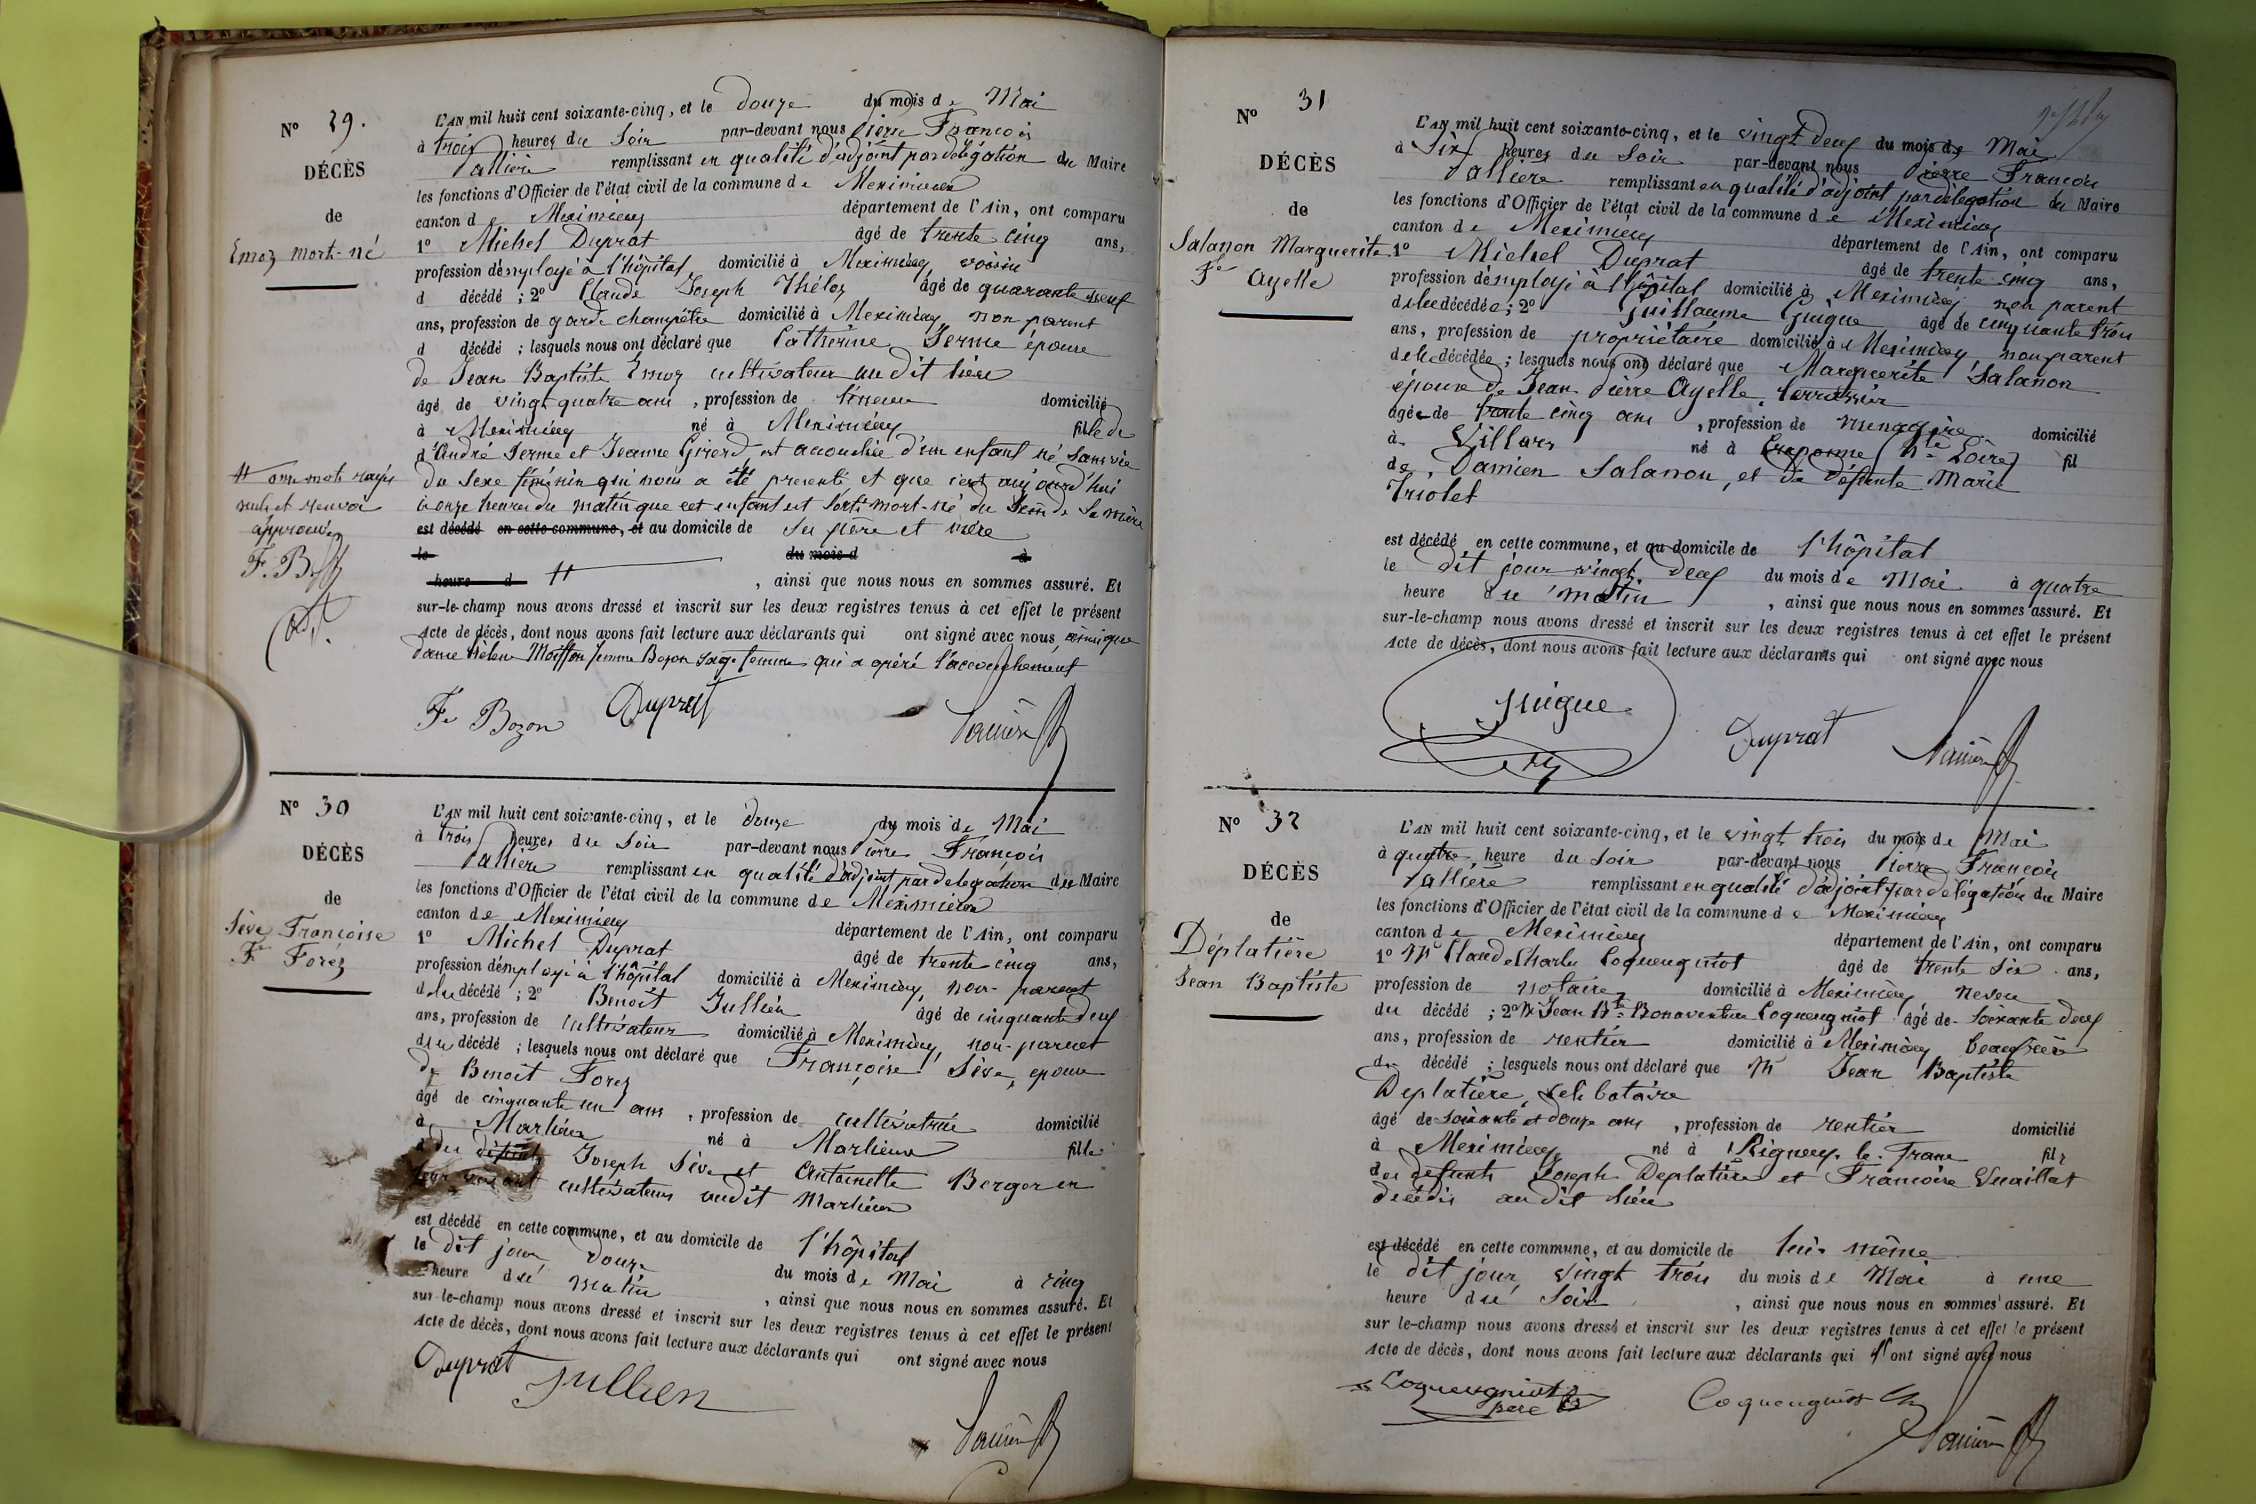 N° 29.
DÉCÈS
de
Emoz mort-né
L'AN mil huit cent soixante-cinq, et le douze du mois de Mai
à trois heures du Soir par-devant nous Pierre François
Vallière remplissant en qualité d'adjoint par délégation du Maire
les fonctions d'Officier de l'état civil de la commune de Meximieux
canton de Meximieux département de l'Ain, ont comparu
1° Michel Duprat âgé de trente cinq ans,
profession d'employé à l'hôpital domicilié à Meximieux voisin
d décédé ; 2° Claude Joseph Théloz âgé de quarante neuf
ans, profession de garde champêtre domicilié à Meximieux non parent
d décédé ; lesquels nous ont déclaré que Catherine Serme épouse
de Jean Baptiste Emoz cultivateur au dit lieu
âgé de vingt quatre ans, profession de domicilié
à Meximieux né à Meximieux fille de
d'André Serme et Jeanne Girerd, est accouchée d'un enfant né sans vie
du sexe féminin qui nous a été présenté et que c'est aujourd'hui
à onze heures du matin que cet enfant est sorti mort-né du sein de sa mère
est décédé en cette commune, et au domicile de ses père et mère
le du mois d à
heure d , ainsi que nous nous en sommes assuré. Et
sur-le-champ nous avons dressé et inscrit sur les deux registres tenus à cet effet le présent
Acte de décès, dont nous avons fait lecture aux déclarants qui ont signé avec nous, ainsi que
dame helene Moiffon femme Bozon sage femme qui a opéré l'accouchement
onze mots rayés
nuls et renvoi
approuvés
F. B.
Fe Bozon Duprat Vallière
N° 30
DÉCÈS
de
Sève Françoise
Fe Forez
L'AN mil huit cent soixante-cinq, et le douze du mois de Mai
à trois heures du Soir par-devant nous Pierre François
Vallière remplissant en qualité d'adjoint par délégation du Maire
les fonctions d'Officier de l'état civil de la commune de Meximieux
canton de Meximieux département de l'Ain, ont comparu
1° Michel Duprat âgé de trente cinq ans,
profession d'employé à l'hôpital domicilié à Meximieux, non-parent
de la décédé ; 2° Benoit Jullien âgé de cinquante deux
ans, profession de cultivateur domicilié à Meximieux, non-parent
de la décédé ; lesquels nous ont déclaré que Françoise Sève, épouse
de Benoit Forez
âgé de cinquante un ans, profession de cultivatrice domicilié
à Marlieux né à Marlieux fille
Joseph Sève et Antoinette Berger en
cultivateurs audit Marlieux
est décédé en cette commune, et au domicile de l'hôpital
le dit jour douze du mois de Mai à cinq
heure du matin , ainsi que nous nous en sommes assuré. Et
sur-le-champ nous avons dressé et inscrit sur les deux registres tenus à cet effet le présent
Acte de décès, dont nous avons fait lecture aux déclarants qui ont signé avec nous
Duprat Jullien Vallière
N° 31
DÉCÈS
de
Salanon Marguerite
Fe Ayelle
L'AN mil huit cent soixante-cinq, et le vingt deux du mois de Mai
à Six heures du Soir par-devant nous Pierre François
Vallière remplissant en qualité d'adjoint par délégation du Maire
les fonctions d'Officier de l'état civil de la commune de Meximieux
canton de Meximieux département de l'Ain, ont comparu
1° Michel Duprat âgé de trente cinq ans,
profession d'employé à l'hôpital domicilié à Meximieux, non parent
de la décédée ; 2° Guillaume Guigue âgé de cinquante trois
ans, profession de propriétaire domicilié à Meximieux, non parent
de la décédée ; lesquels nous ont déclaré que Marguerite Salanon
épouse de Jean Pierre Ayelle, terrassier
âgée de trente cinq ans, profession de ménagère domicilié
à Villars né à Craponne (hte Loire) fil
de Damien Salanon, et de défunte Marie
Triolet
est décédé en cette commune, et au domicile de l'hôpital
le dit jour vingt deux du mois de Mai à quatre
heure du matin , ainsi que nous nous en sommes assuré. Et
sur-le-champ nous avons dressé et inscrit sur les deux registres tenus à cet effet le présent
Acte de décès, dont nous avons fait lecture aux déclarants qui ont signé avec nous
Guigue Duprat Vallière
N° 32
DÉCÈS
de
Déplatière
Jean Baptiste
L'AN mil huit cent soixante-cinq, et le vingt trois du mois de Mai
à quatre heure du Soir par-devant nous Pierre François
Vallière remplissant en qualité d'adjoint par délégation du Maire
les fonctions d'Officier de l'état civil de la commune de Meximieux
canton de Meximieux département de l'Ain, ont comparu
1° Mr Claude Charles Coqueugniot âgé de trente six ans,
profession de notaire domicilié à Meximieux, neveu
du décédé ; 2° Mr Jean Bte Bonaventure Coqueugniot âgé de soixante deux
ans, profession de rentier domicilié à Meximieux beaufrère
du décédé ; lesquels nous ont déclaré que Mr Jean Baptiste
Déplatière, célibataire
âgé de soixante et douze ans, profession de rentier domicilié
à Meximieux né à Rigneux-le-Franc fils
des défunts Joseph Déplatière et Françoise
décédés au dit lieu
est décédé en cette commune, et au domicile de lui-même
le dit jour vingt trois du mois de Mai à une
heure du Soir , ainsi que nous nous en sommes assuré. Et
sur le-champ nous avons dressé et inscrit sur les deux registres tenus à cet effet le présent
Acte de décès, dont nous avons fait lecture aux déclarants qui ont signé avec nous
Coqueugniot père Coqueugniot Ch Vallière